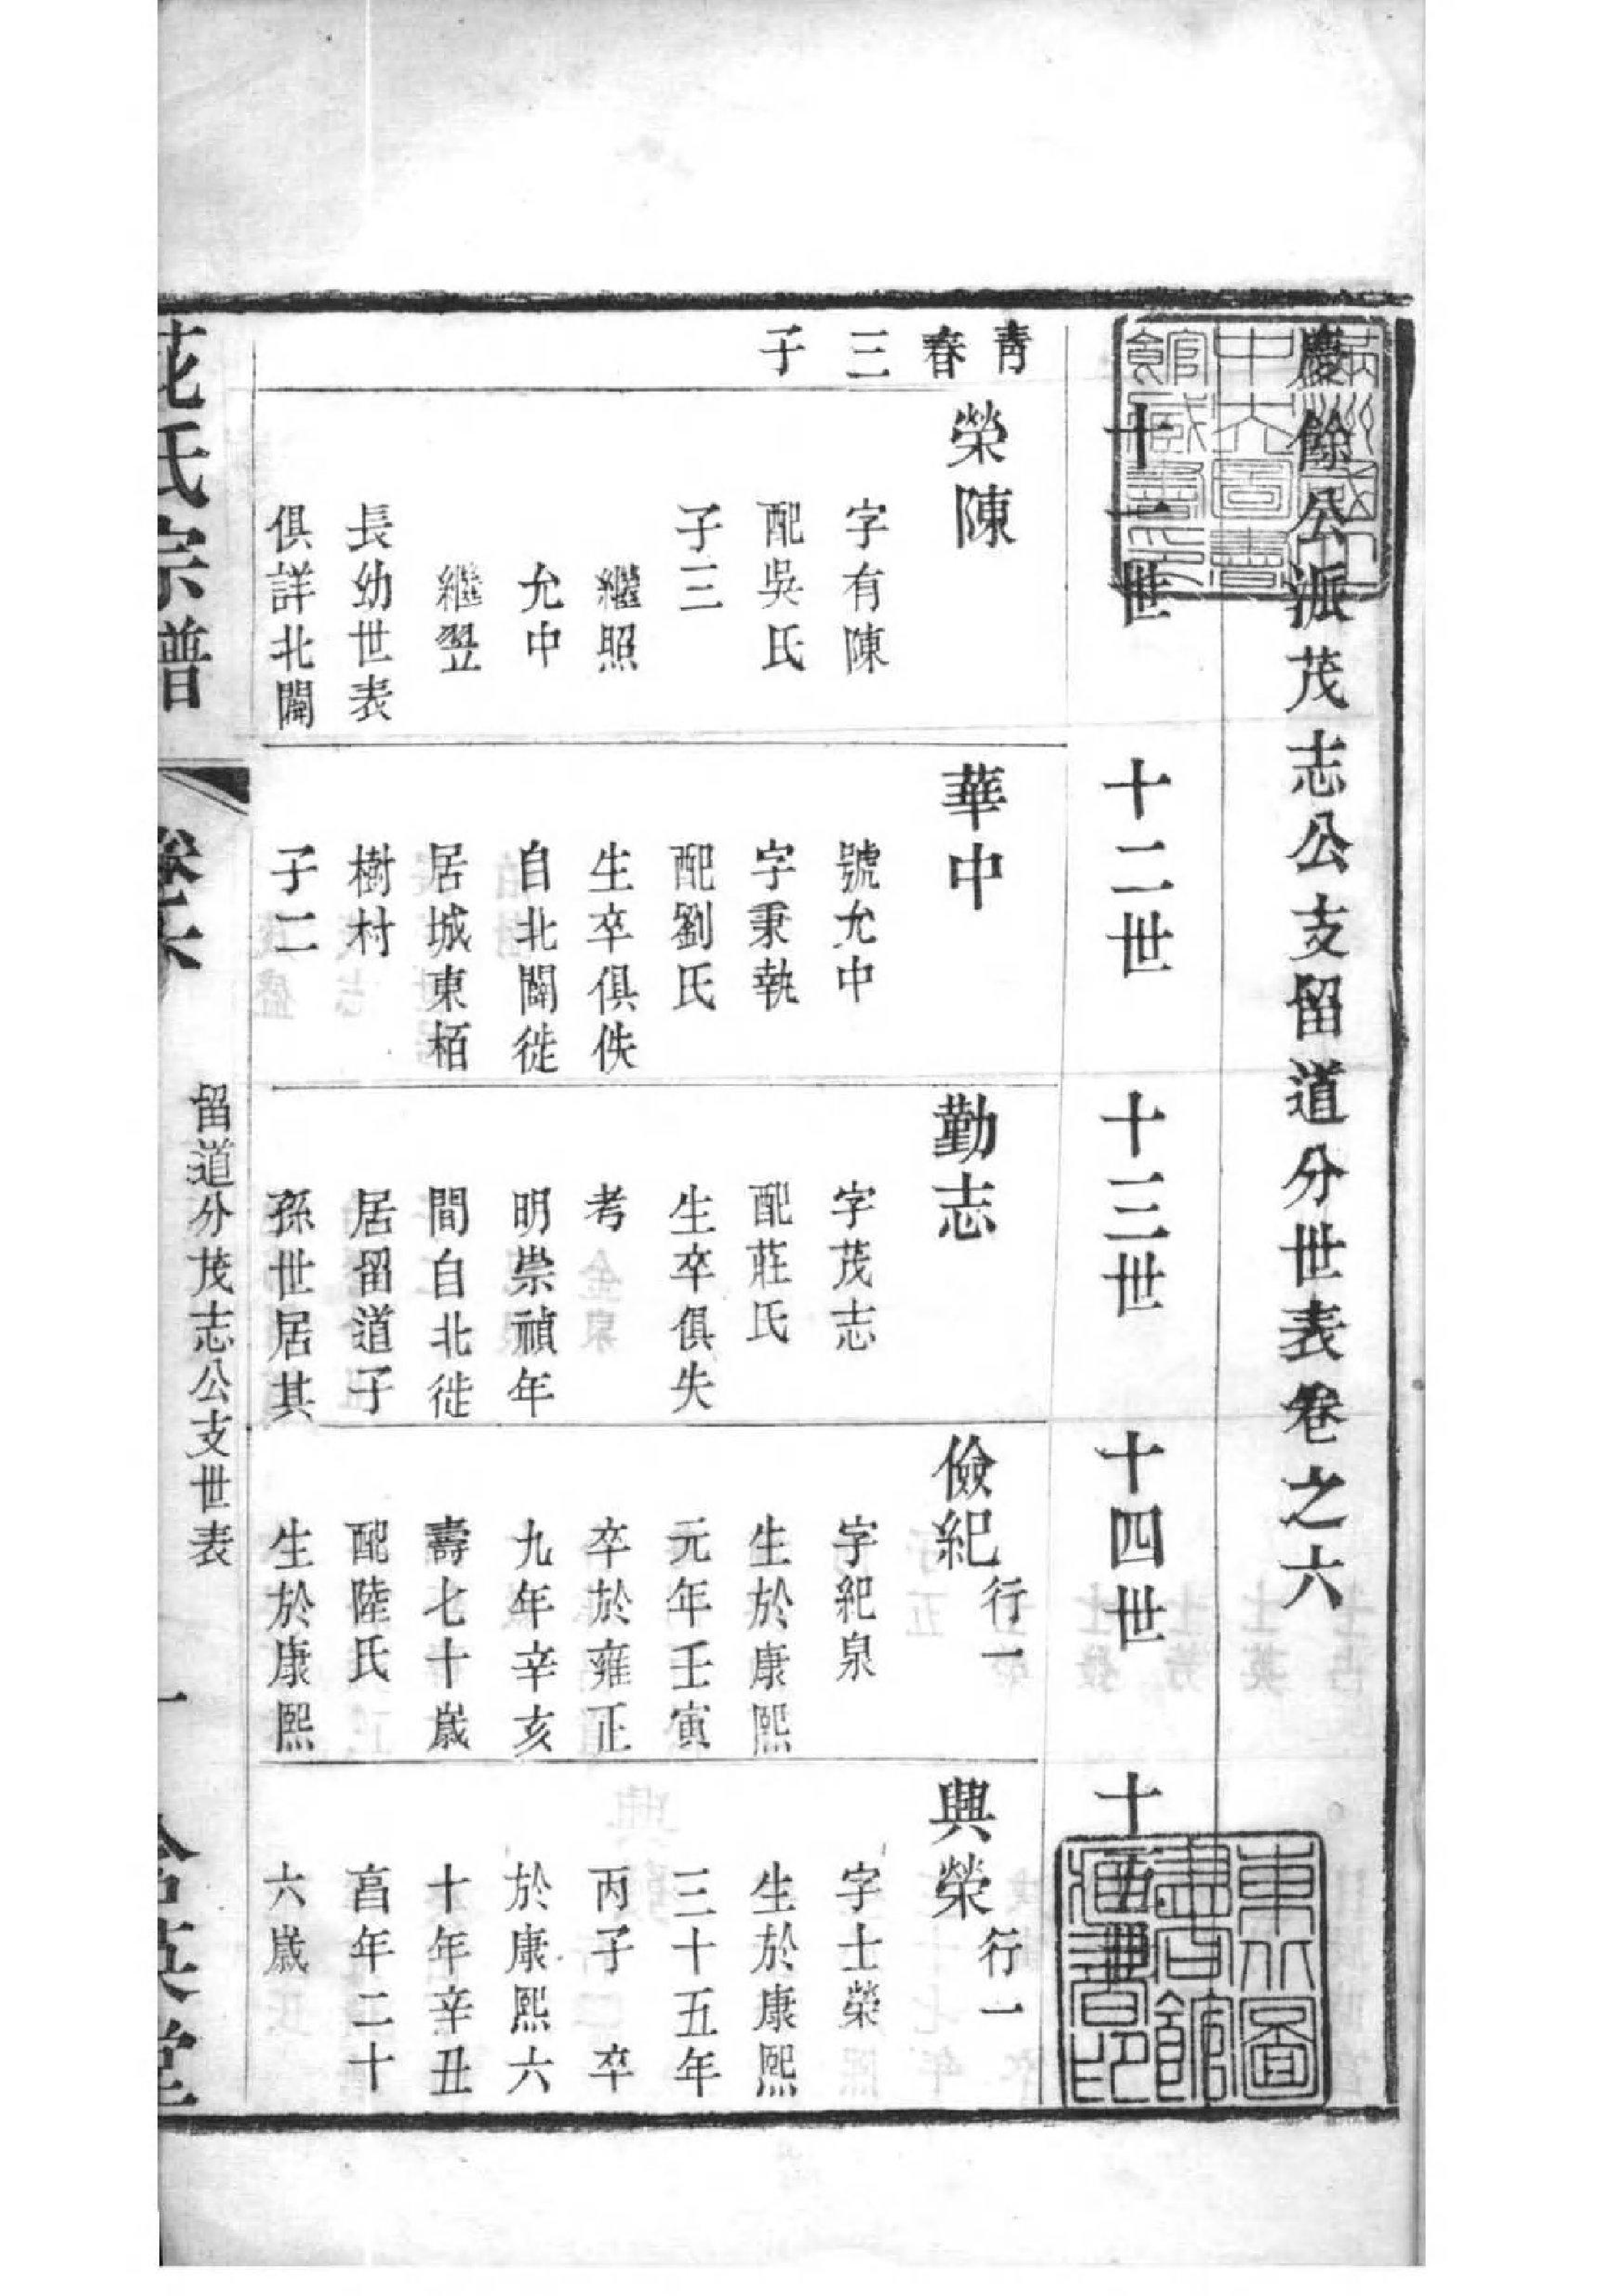 慶餘公派茂志公支留道分世表卷之六
十一世
十二世
十三世
十四世
十五世
青春三子
榮陳
字有陳
配吳氏
子三
繼照
允中
繼翌
長幼世表
俱詳北閘
華中
號允中
字秉執
配劉氏
生卒俱佚
自北閘徙
居城東栢
樹村
子二
勤志
字茂志
配莊氏
生卒俱失
考
明崇禎年
間自北徙
居留道子
孫世居其
儉紀 行一
字紀泉
生於康熙
元年壬寅
卒於雍正
九年辛亥
壽七十歲
配陸氏
生於康熙
興榮 行一
字士榮
生於康熙
三十五年
丙子 卒
於康熙六
十年辛丑
亯年二十
六歲
花氏宗譜
卷六
留道分茂志公支世表
一
東北圖書館藏書印